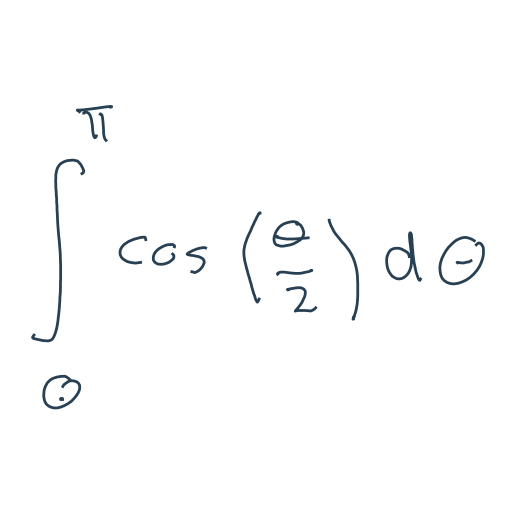 \int_{0}^{\pi} \cos\left(\frac{\theta}{2}\right) d\theta